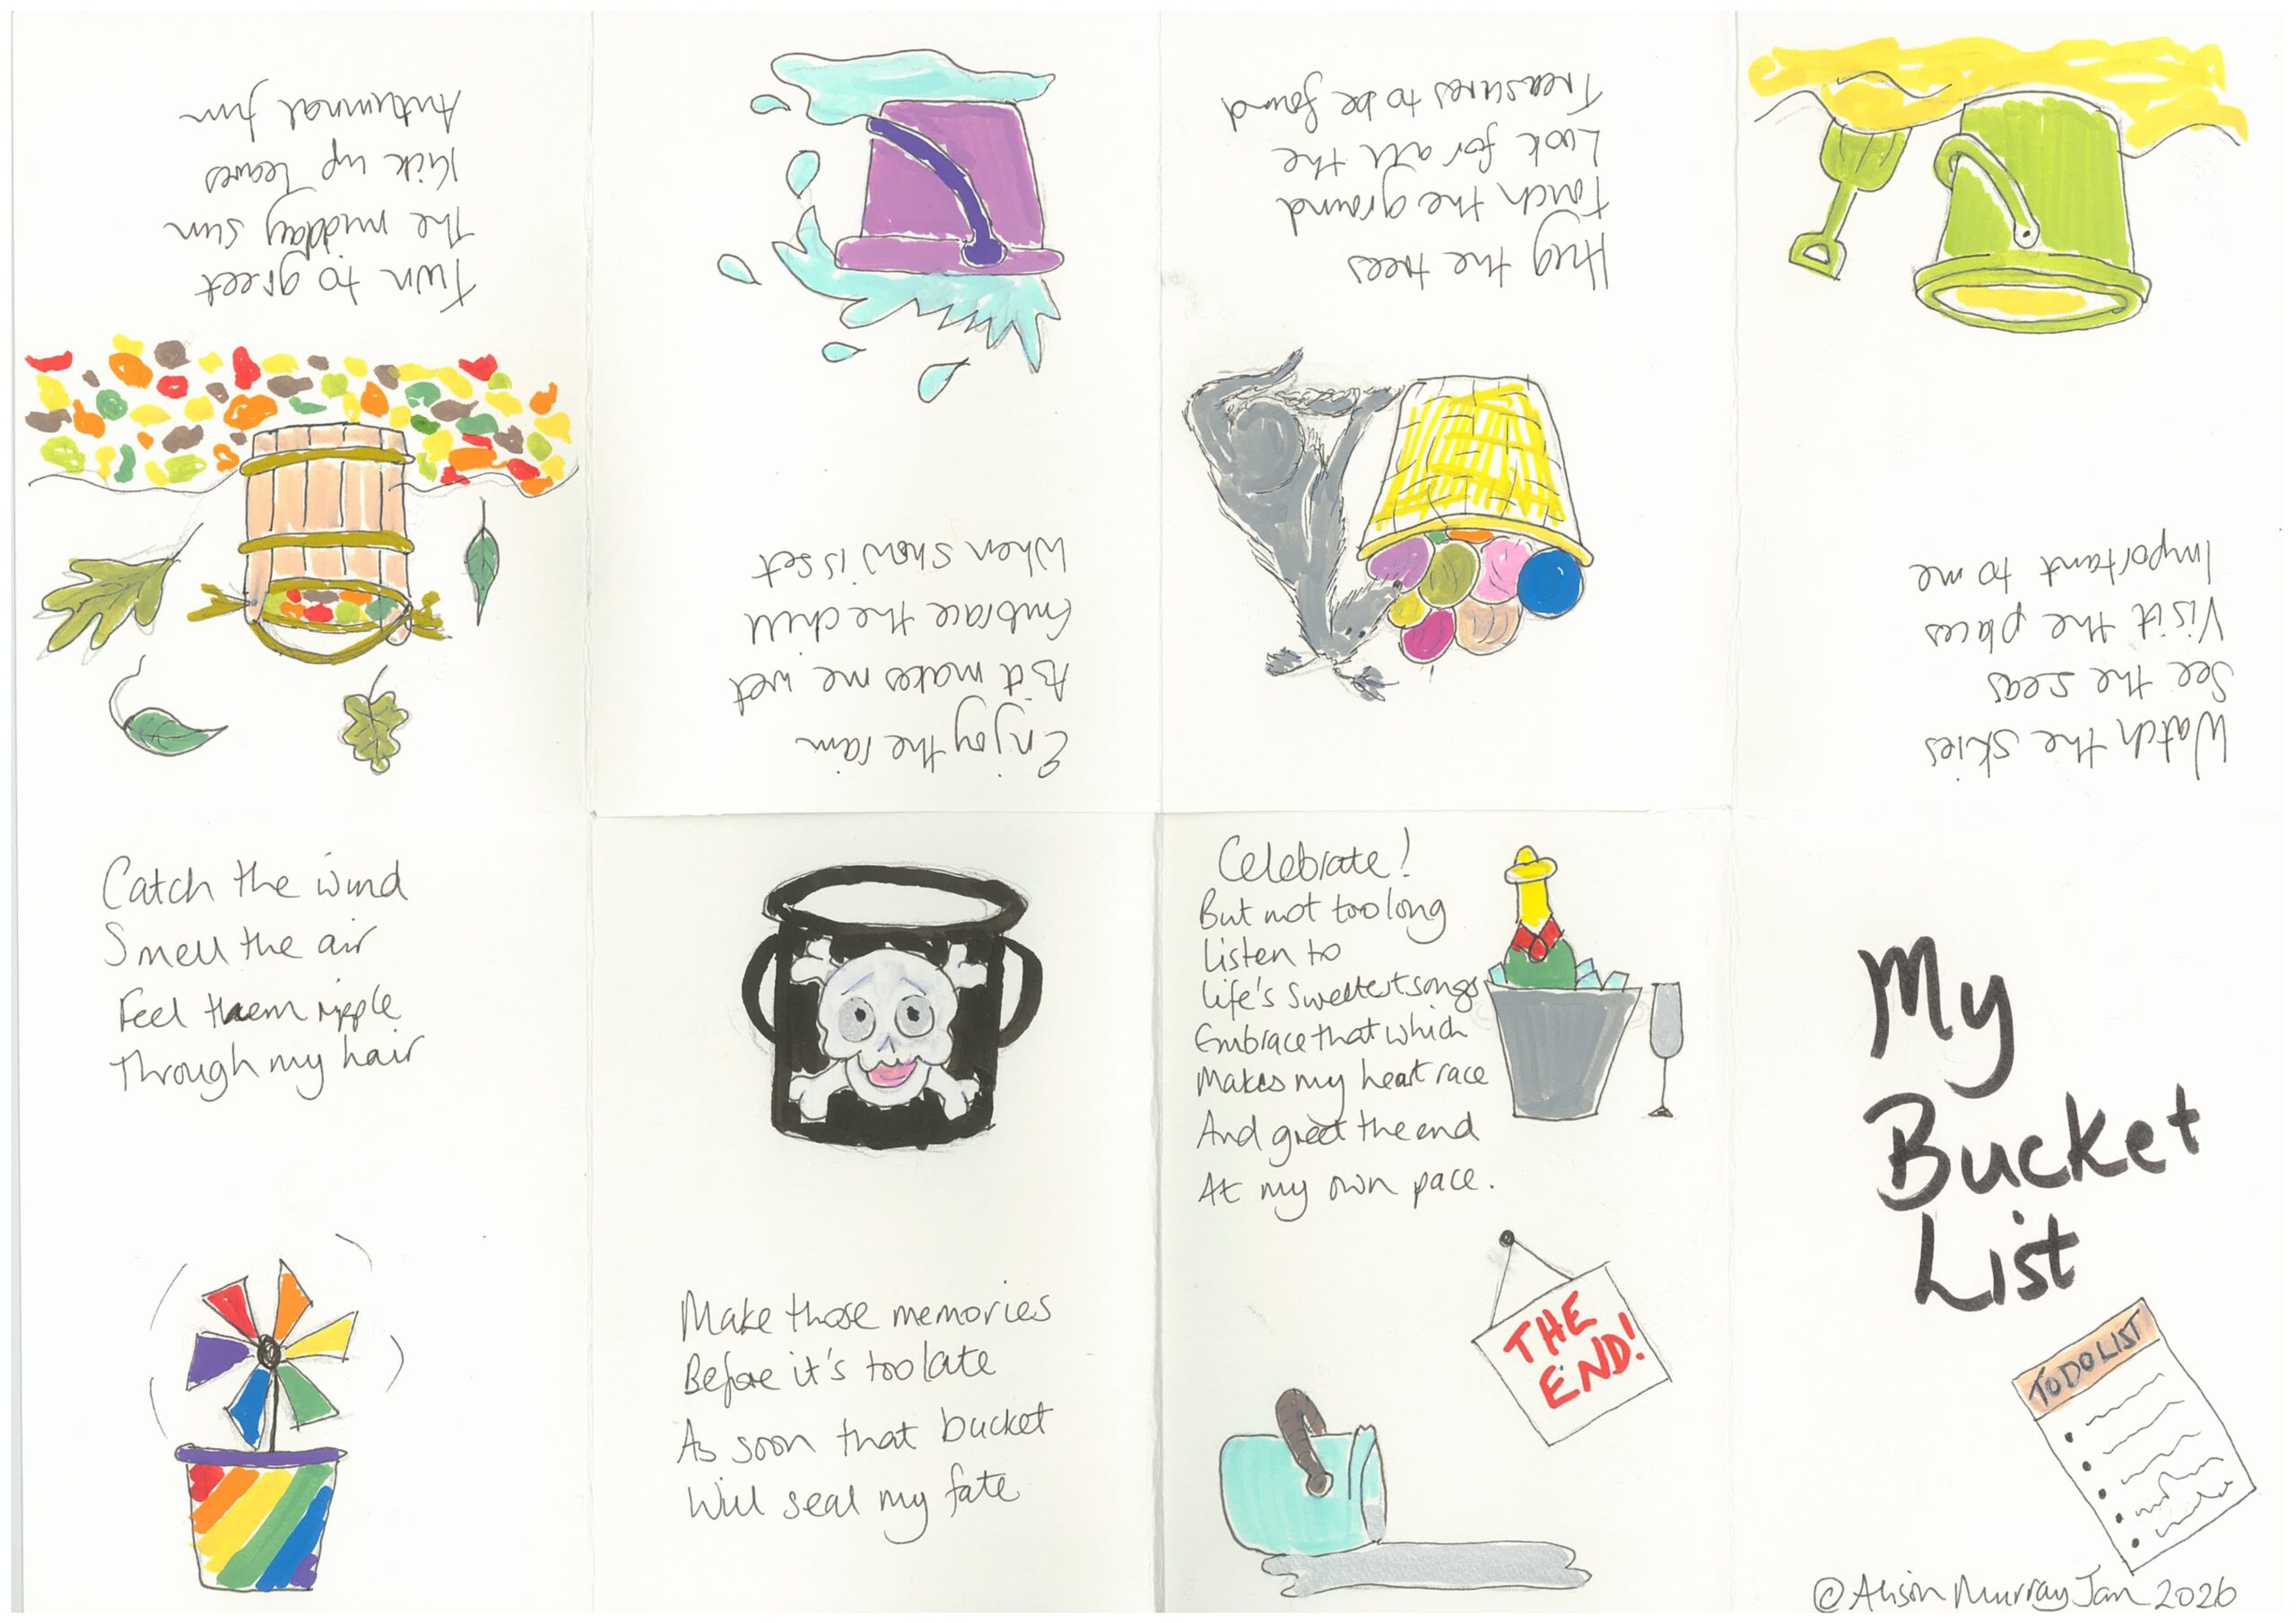 My
Bucket
List
TO DO LIST
@ Alison Murray Jan 2026
Watch the skies
See the seas
Visit the places
Important to me
Hug the trees
Touch the ground
Look for all the
Treasures to be found
Enjoy the rain
As it makes me wet
Embrace the chill
When snow is set
Turn to greet
The midday sun
Kick up leaves
Autumnal fun
Catch the wind
Smell the air
Feel them ripple
Through my hair
Make those memories
Before it's too late
As soon that bucket
Will seal my fate
Celebrate!
But not too long
Listen to
Life's sweetest songs
Embrace that which
Makes my heart race
And greet the end
At my own pace.
THE
END!